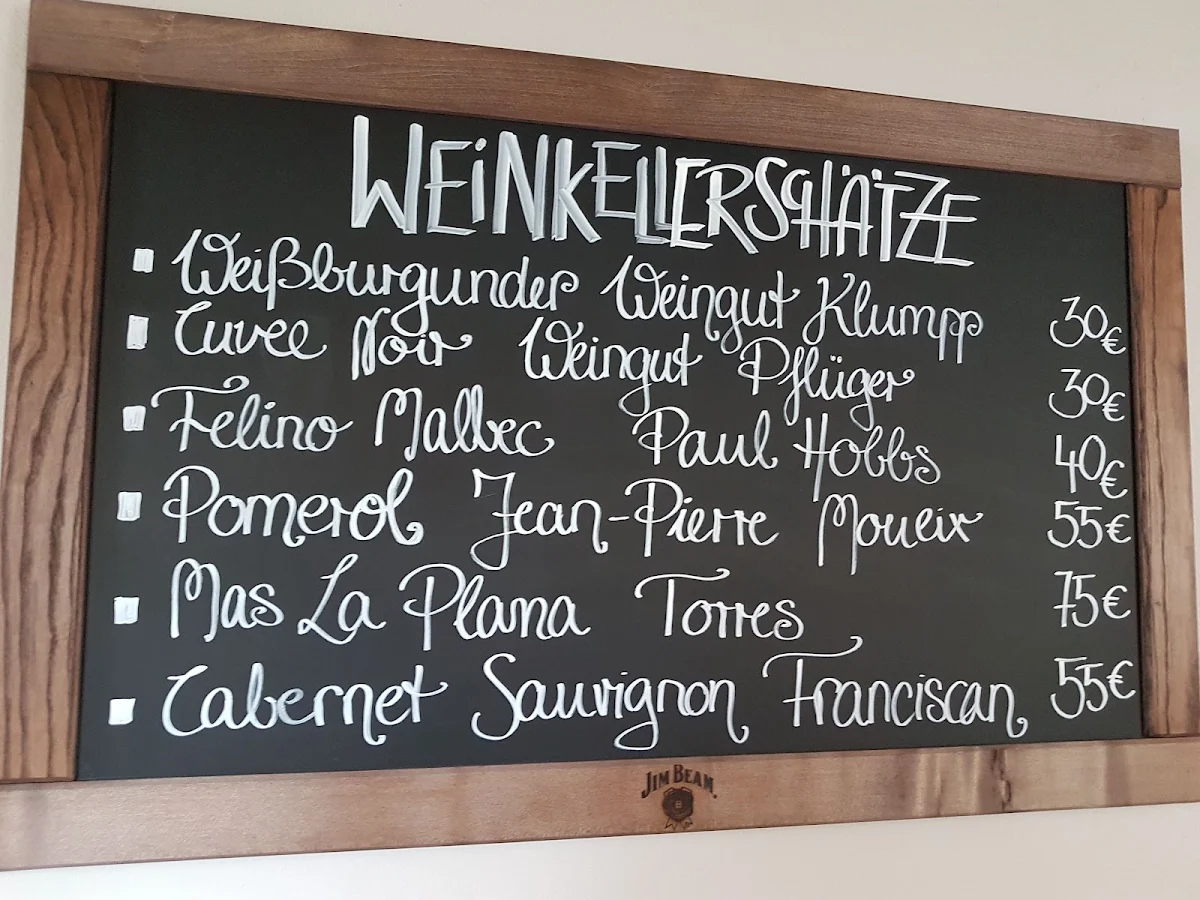 WEINKELLERSCHÄTZE
Weißburgunder Weingut Klumpp 30€
Cuvee Noir Weingut Pflüger 30€
Felino Malbec Paul Hobbs 40€
Pomerol Jean-Pierre Moueix 55€
Mas La Plana Torres 75€
Cabernet Sauvignon Franciscan 55€
JIM BEAM.
B